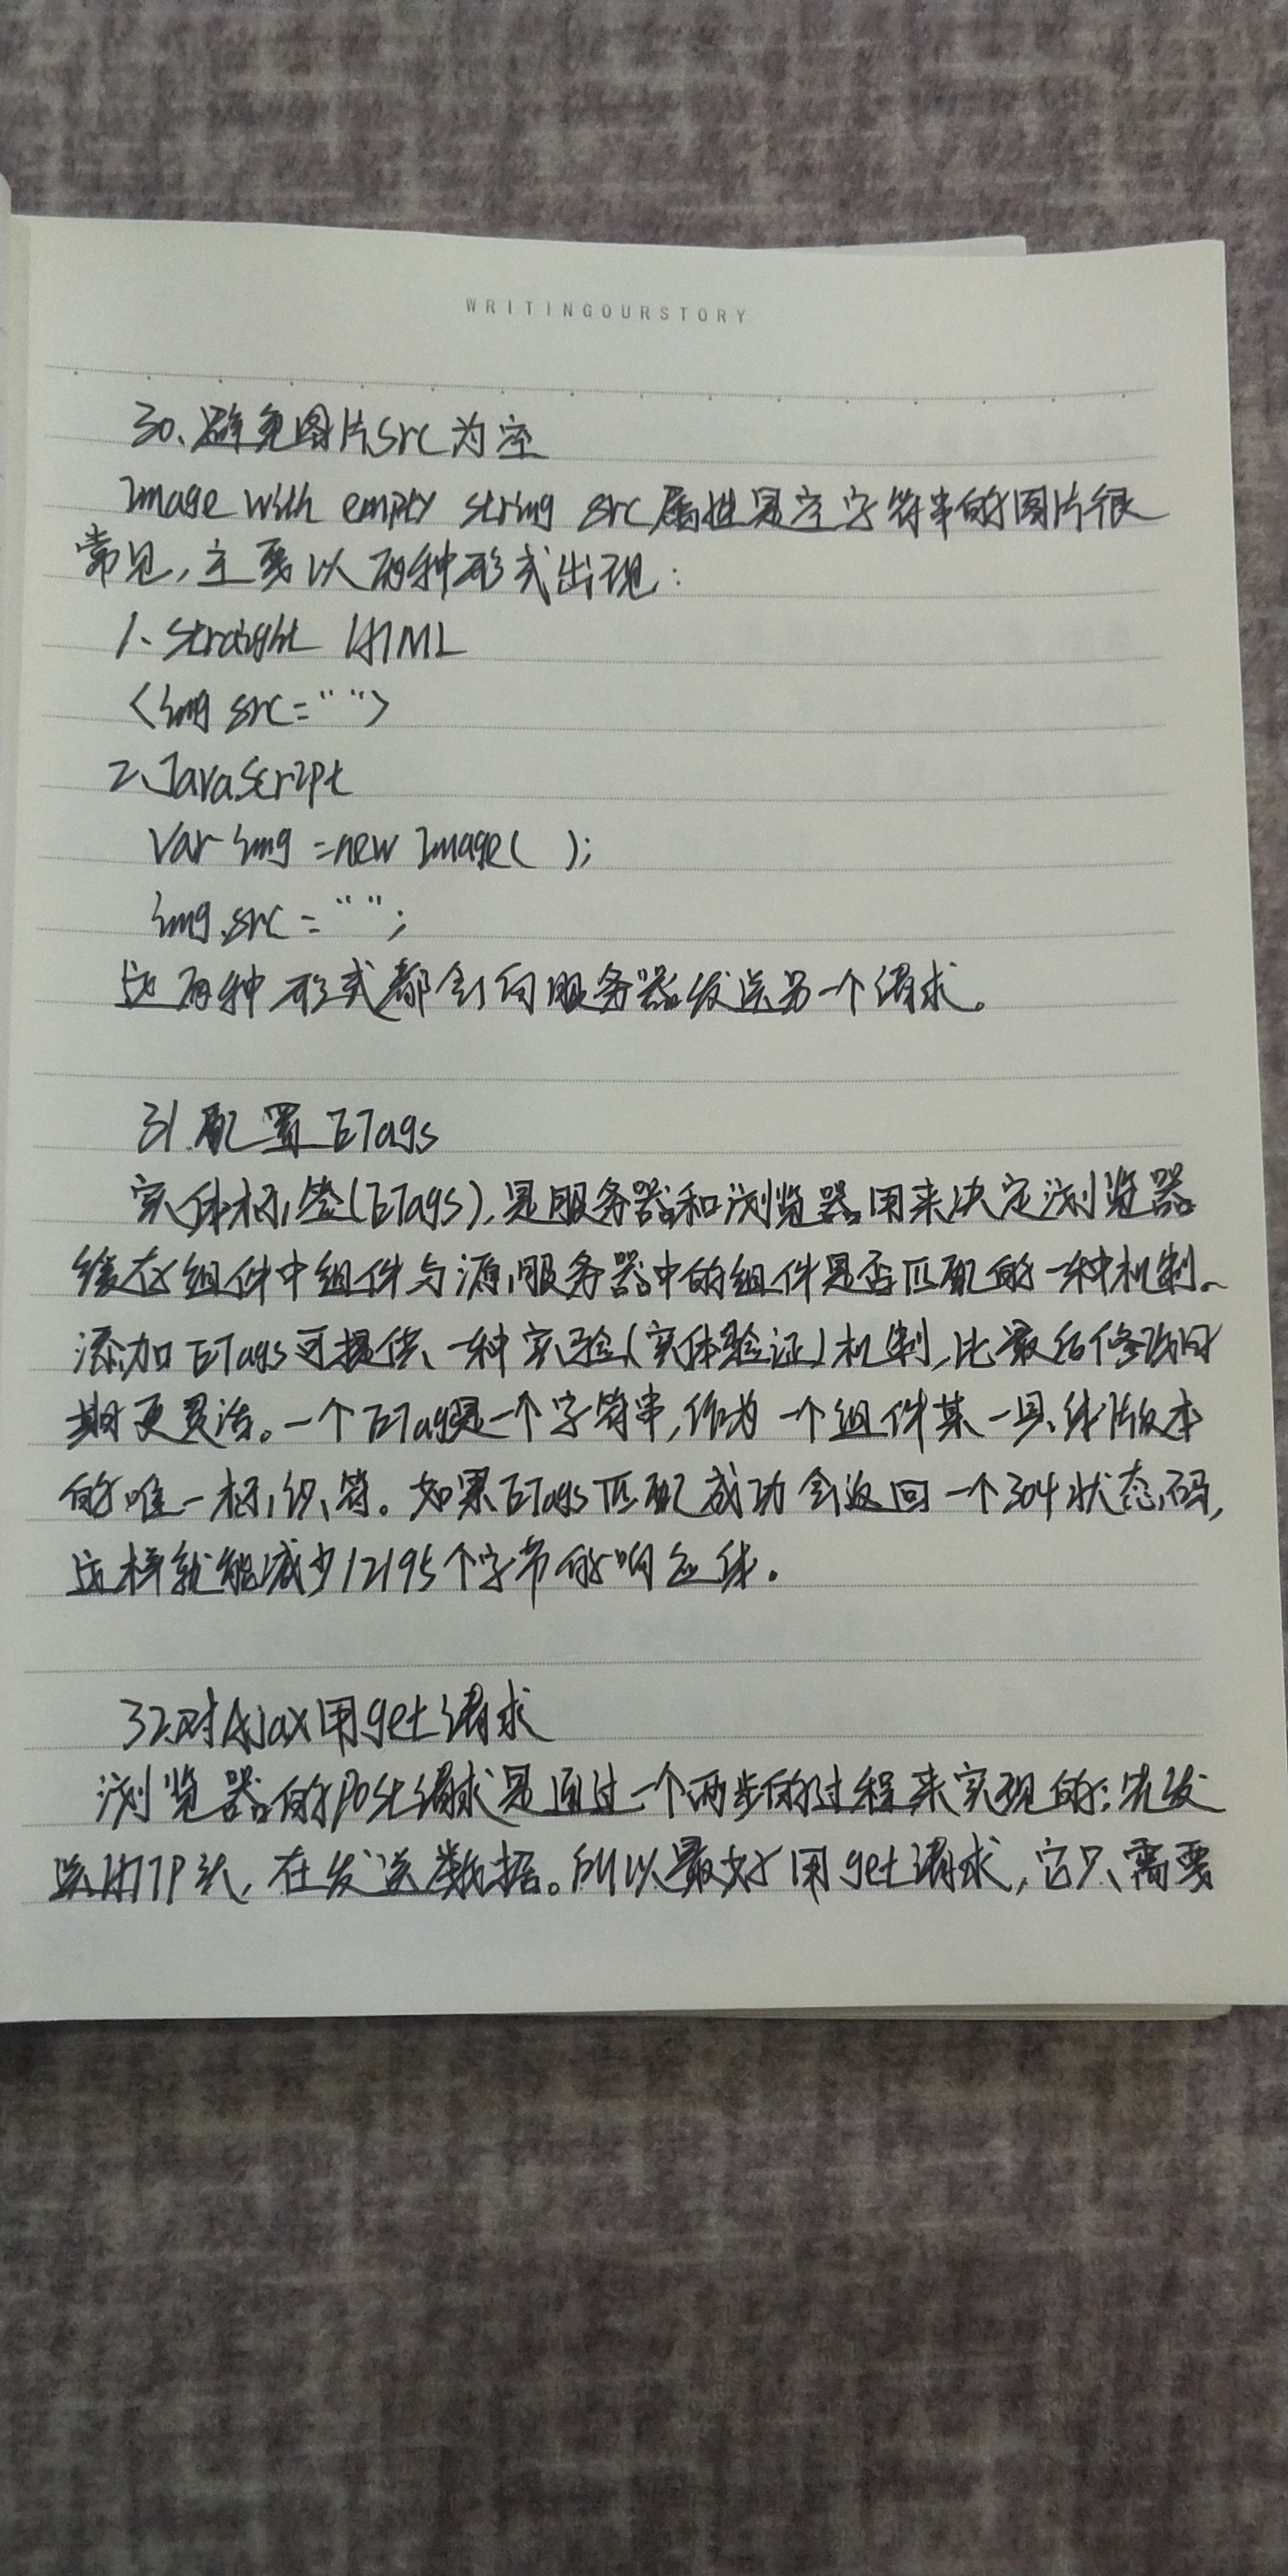 WRITINGOURSTORY
30、避免图片src为空
Image with empty string src属性是空字符串的图片很
常见,主要以两种形式出现:
1、Straight HTML
<img src="">
2、JavaScript
Var img =new Image( );
img.src = "";
这两种形式都会向服务器发送另一个请求。
31.配置ETags
实体标签(ETags),是服务器和浏览器用来决定浏览器
缓存组件中组件与源服务器中的组件是否匹配的一种机制。
添加ETags可提供一种实验(实体验证)机制,比最后修改日
期更灵活。一个ETag是一个字符串,作为一个组件某一具体版本
的唯一标识符。如果ETags匹配成功会返回一个304状态码,
这样就能减少12195个字节的响应体.
32.对Ajax用get请求
浏览器的post请求是通过一个两步的过程来实现的:先发
送HTTP头,在发送数据。所以最好用get请求,它只需要